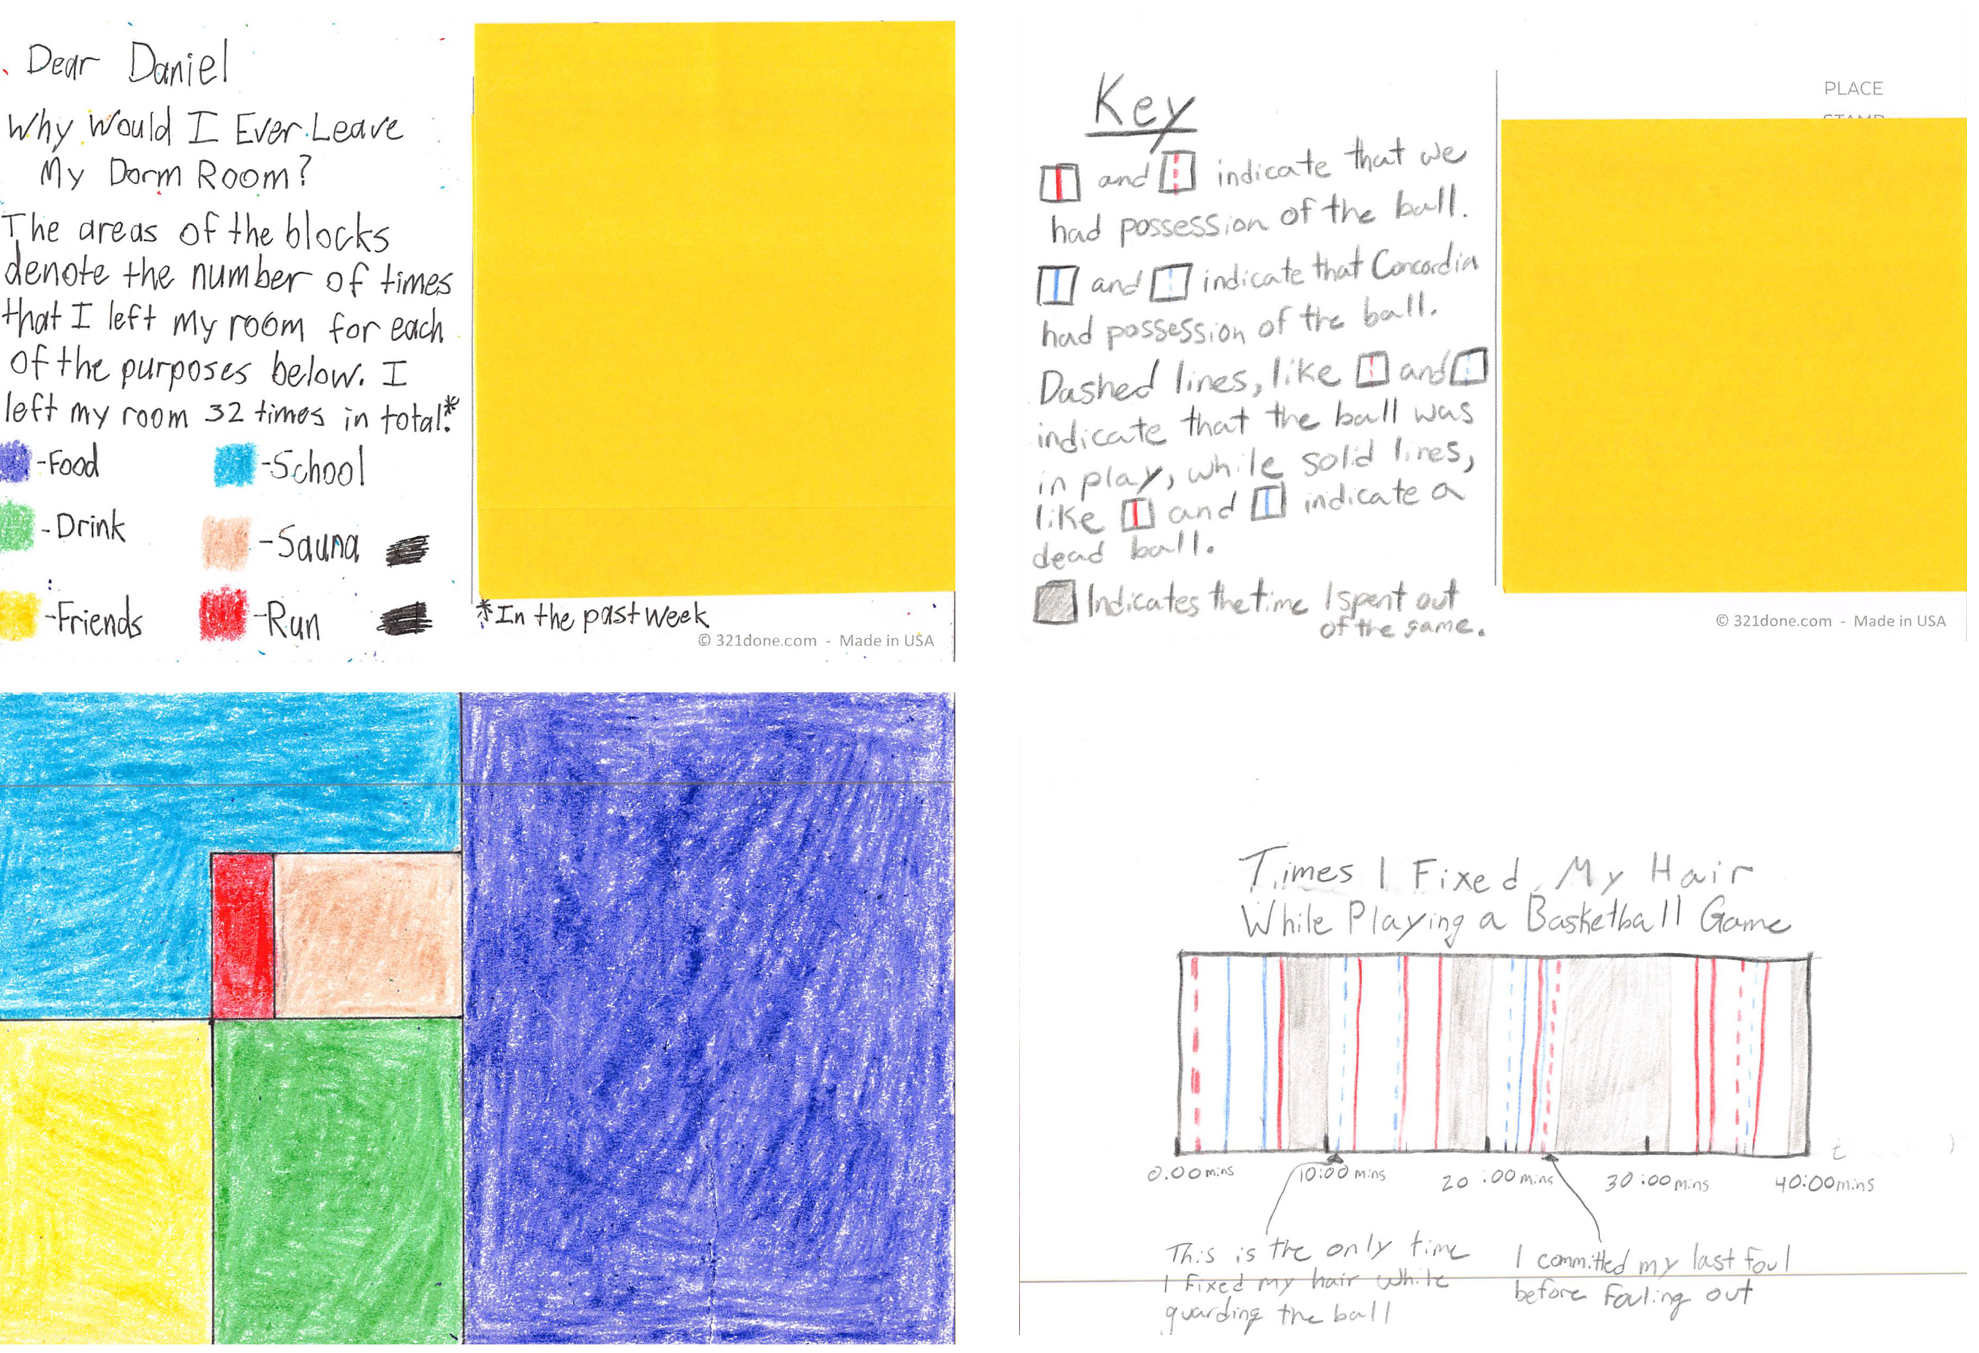 Dear Daniel
Why Would I Ever Leave
My Dorm Room?
The areas of the blocks
denote the number of times
that I left my room for each
of the purposes below. I
left my room 32 times in total.*
-Food
-School
-Drink
-Sauna
-Friends
-Run
*In the past week
© 321done.com - Made in USA
Key
PLACE
and indicate that we
had possession of the ball.
and indicate that Concordia
had possession of the ball.
Dashed lines, like and
indicate that the ball was
in play, while solid lines,
like and indicate a
dead ball.
Indicates the time I spent out
of the game.
© 321done.com - Made in USA
Times I Fixed My Hair
While Playing a Basketball Game
0.00 mins
10:00 mins
20:00 mins
30:00 mins
40:00 mins
This is the only time
I fixed my hair while
guarding the ball
I committed my last foul
before fouling out